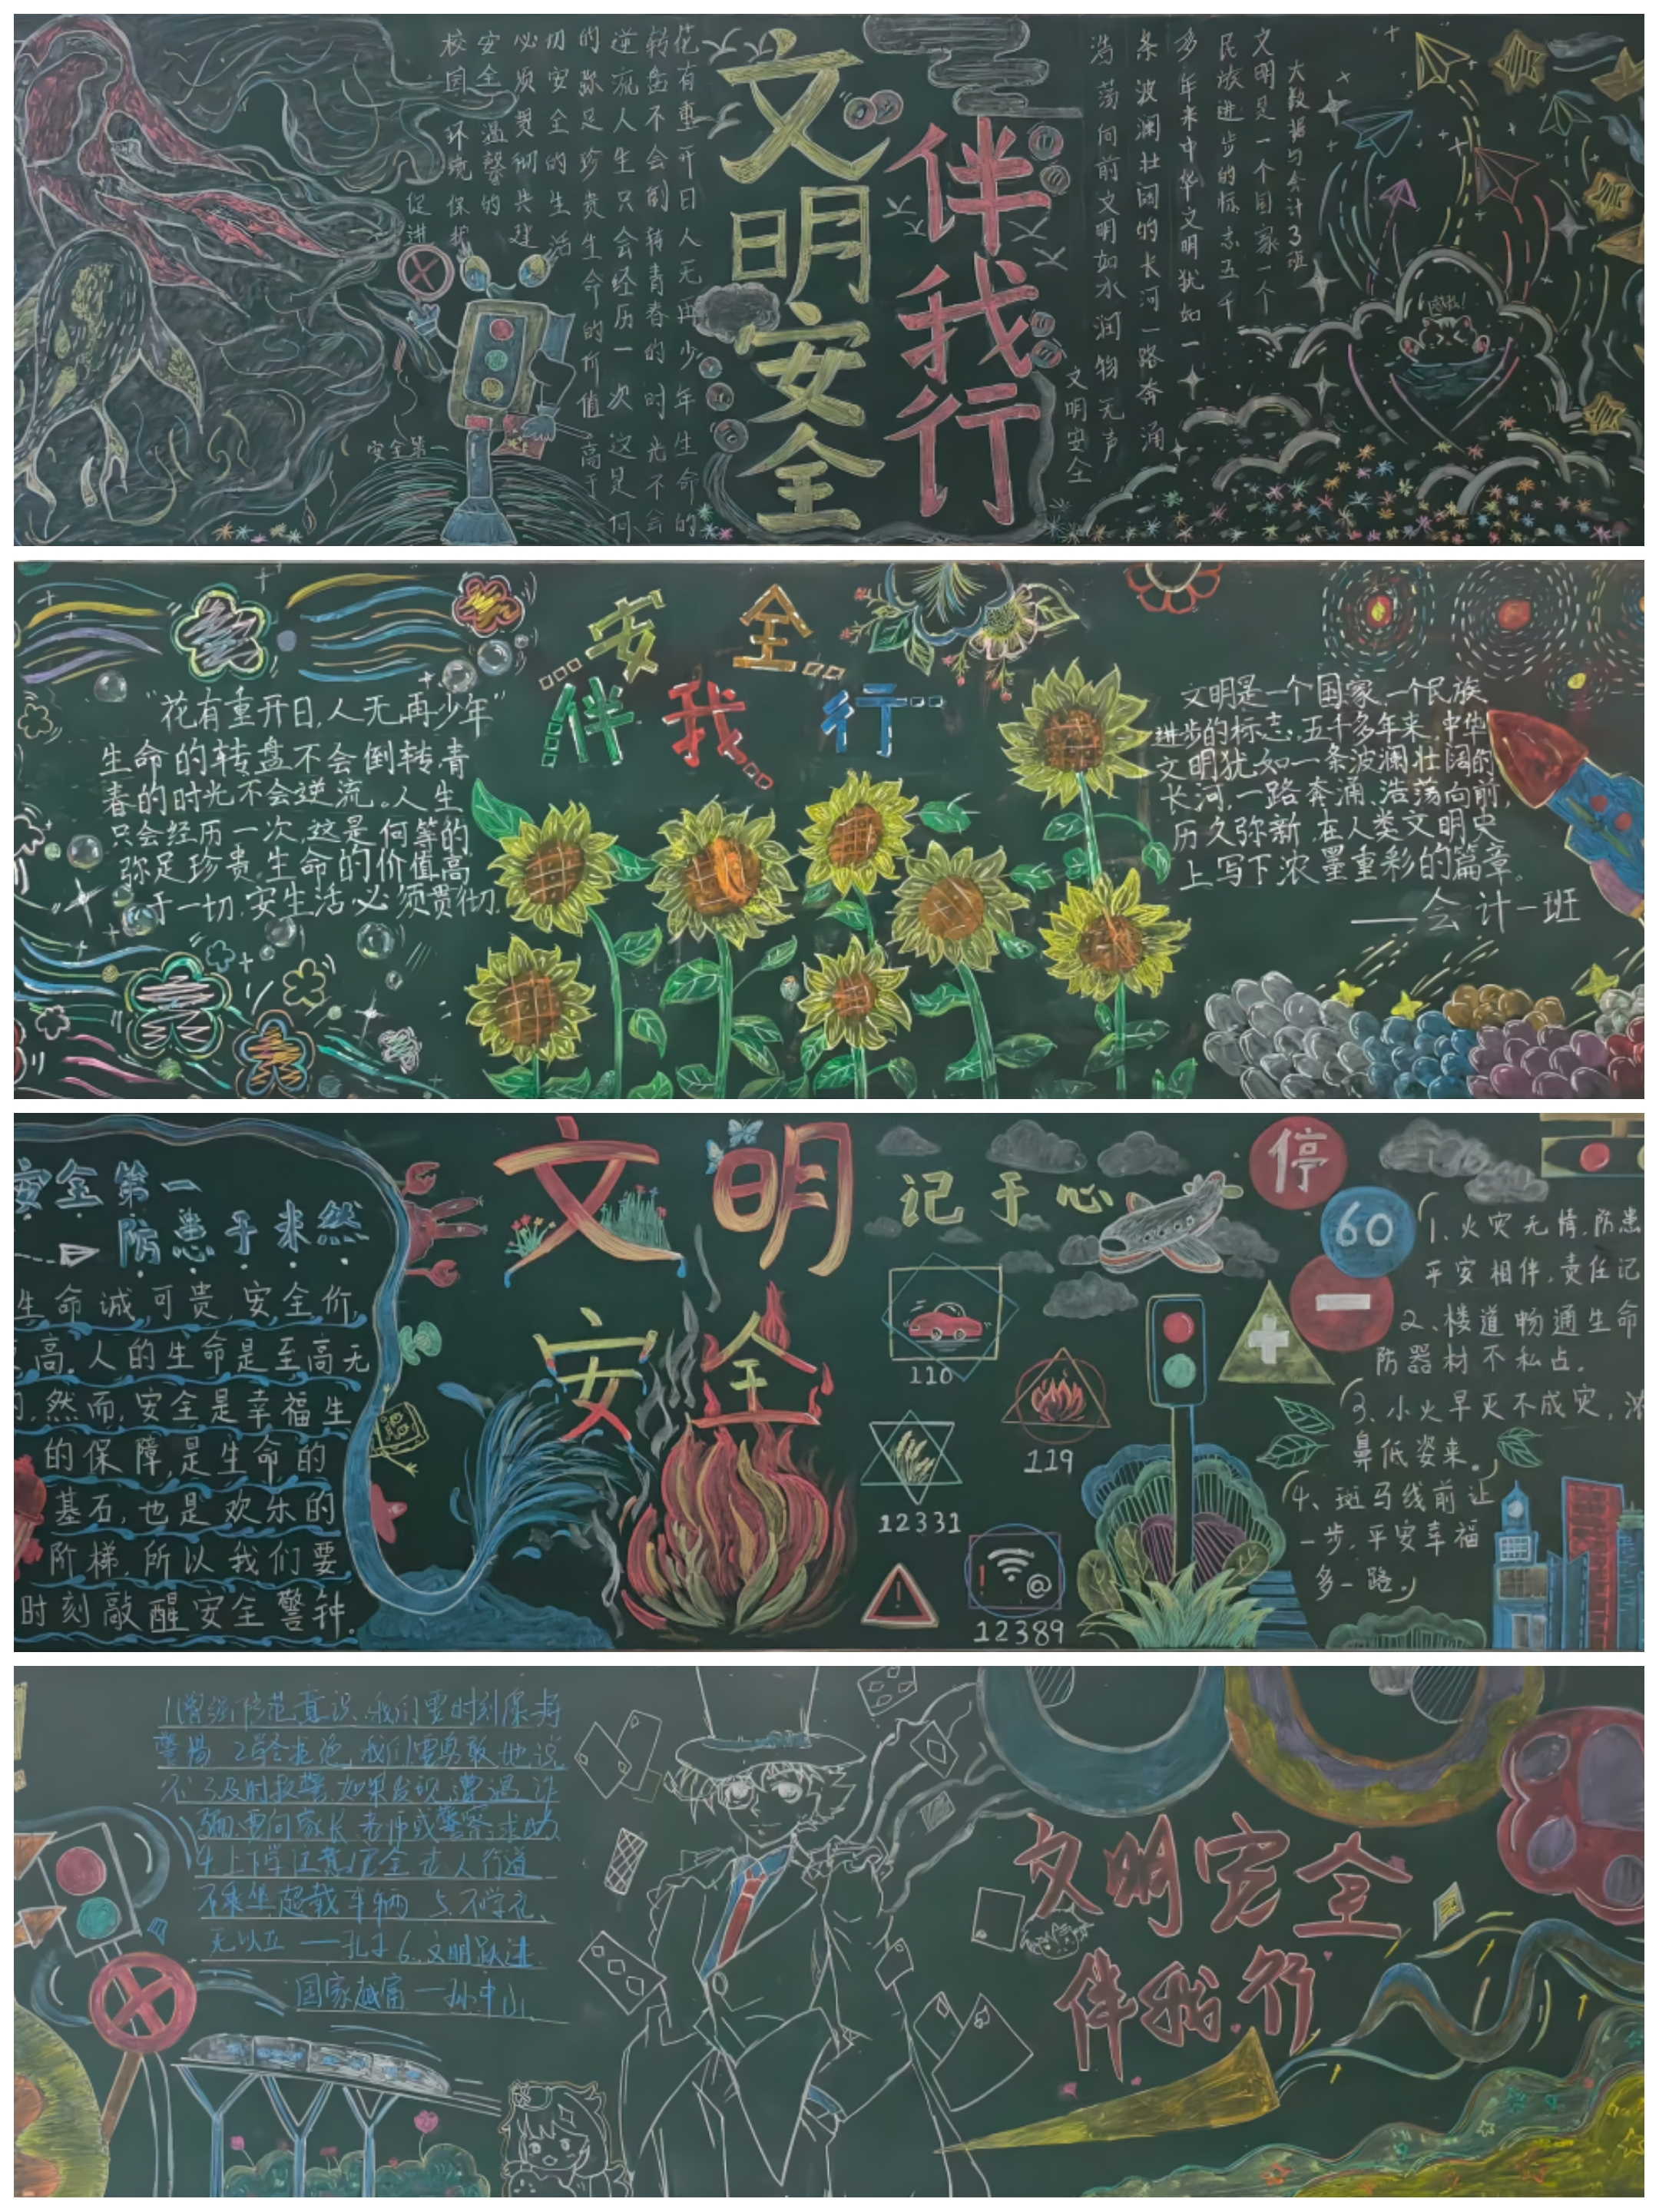 文明安全
伴我行
花有重开日人无再少年生命的
转盘不会倒转青春的时光不会
逆流人生只会经历一次这是何
的弥足珍贵生命的价值高于
切安全的生活
必须贯彻共建
安全温馨的
校园环境保护
促进
安全第一
大数据与会计3班
文明是一个国家一个
民族进步的标志五千
多年来中华文明犹如一
条波澜壮阔的长河一路奔涌
浩荡向前文明如水润物无声
文明安全
安全
伴我行
“花有重开日,人无再少年”
生命的转盘不会倒转青
春的时光不会逆流。人生
只会经历一次,这是何等的
弥足珍贵,生命的价值高
于一切,安生活必须贯彻.
文明是一个国家、一个民族
进步的标志,五千多年来,中华
文明犹如一条波澜壮阔的
长河,一路奔涌、浩荡向前,
历久弥新,在人类文明史
上写下浓墨重彩的篇章。
——会计一班
安全第一
防患于未然
生命诚可贵,安全价
高.人的生命是至高无
的.然而,安全是幸福生
的保障,是生命的
基石,也是欢乐的
阶梯,所以我们要
时刻敲醒安全警钟.
文明
安全
记于心
110
119
12331
12389
@
停
60
1、火灾无情,防患
平安相伴,责任记
2、楼道畅通生命
防器材不私占。
3、小火早灭不成灾,浓
鼻低姿来。
4、斑马线前让
一步,平安幸福
多一路。
1增强防范意识,我们要时刻保持
警惕 2.学会拒绝,我们要勇敢地说
不 3及时报警,如果发现遭遇诈
骗,要向家长、老师或警察求助
4.上下学注意安全走人行道
不乘坐超载车辆 5.不学礼、
无以立 ——孔子 6.文明跃进
国家越富 —孙中山
文明安全
伴我行